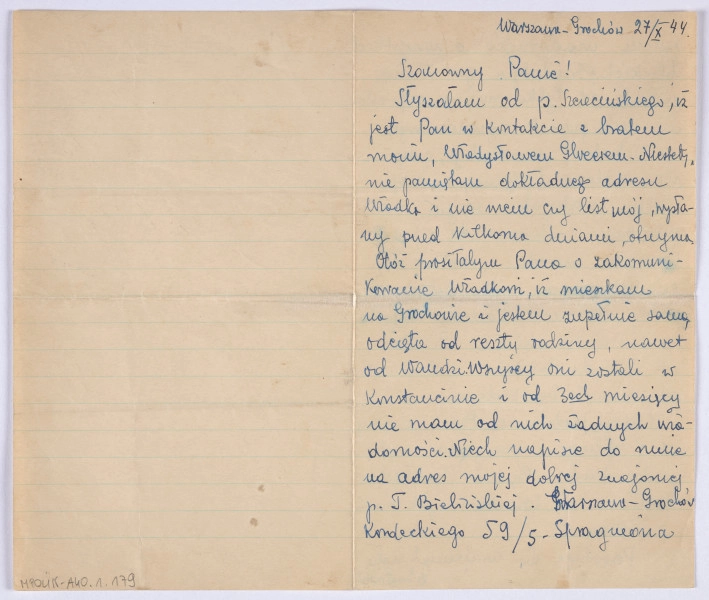 Warszawa-Grochów 27/X 44.
Szanowny Panie!
Słyszałam od p. Szczecińskiego, iż
jest Pan w kontakcie z bratem
moim, Władysławem. Niestety,
nie pamiętam dokładnego adresu
Władka i nie wiem czy list mój, wysła-
ny przed kilkoma dniami, otrzyma.
Otóż prosiłabym Pana o zakomuni-
kowanie Władkowi, iż mieszkam
na Grochowie i jestem zupełnie sama,
odcięta od reszty rodziny, nawet
od Wandzi. Wszyscy oni zostali w
Konstancinie i od 3ech miesięcy
nie mam od nich żadnych wia-
domości. Niech napisze do mnie
na adres mojej dobrej znajomej
p. T. Bielińskiej. Warszawa-Grochów
Kordeckiego 59/5 - Spragniona
MPOLIN-A40.1.179